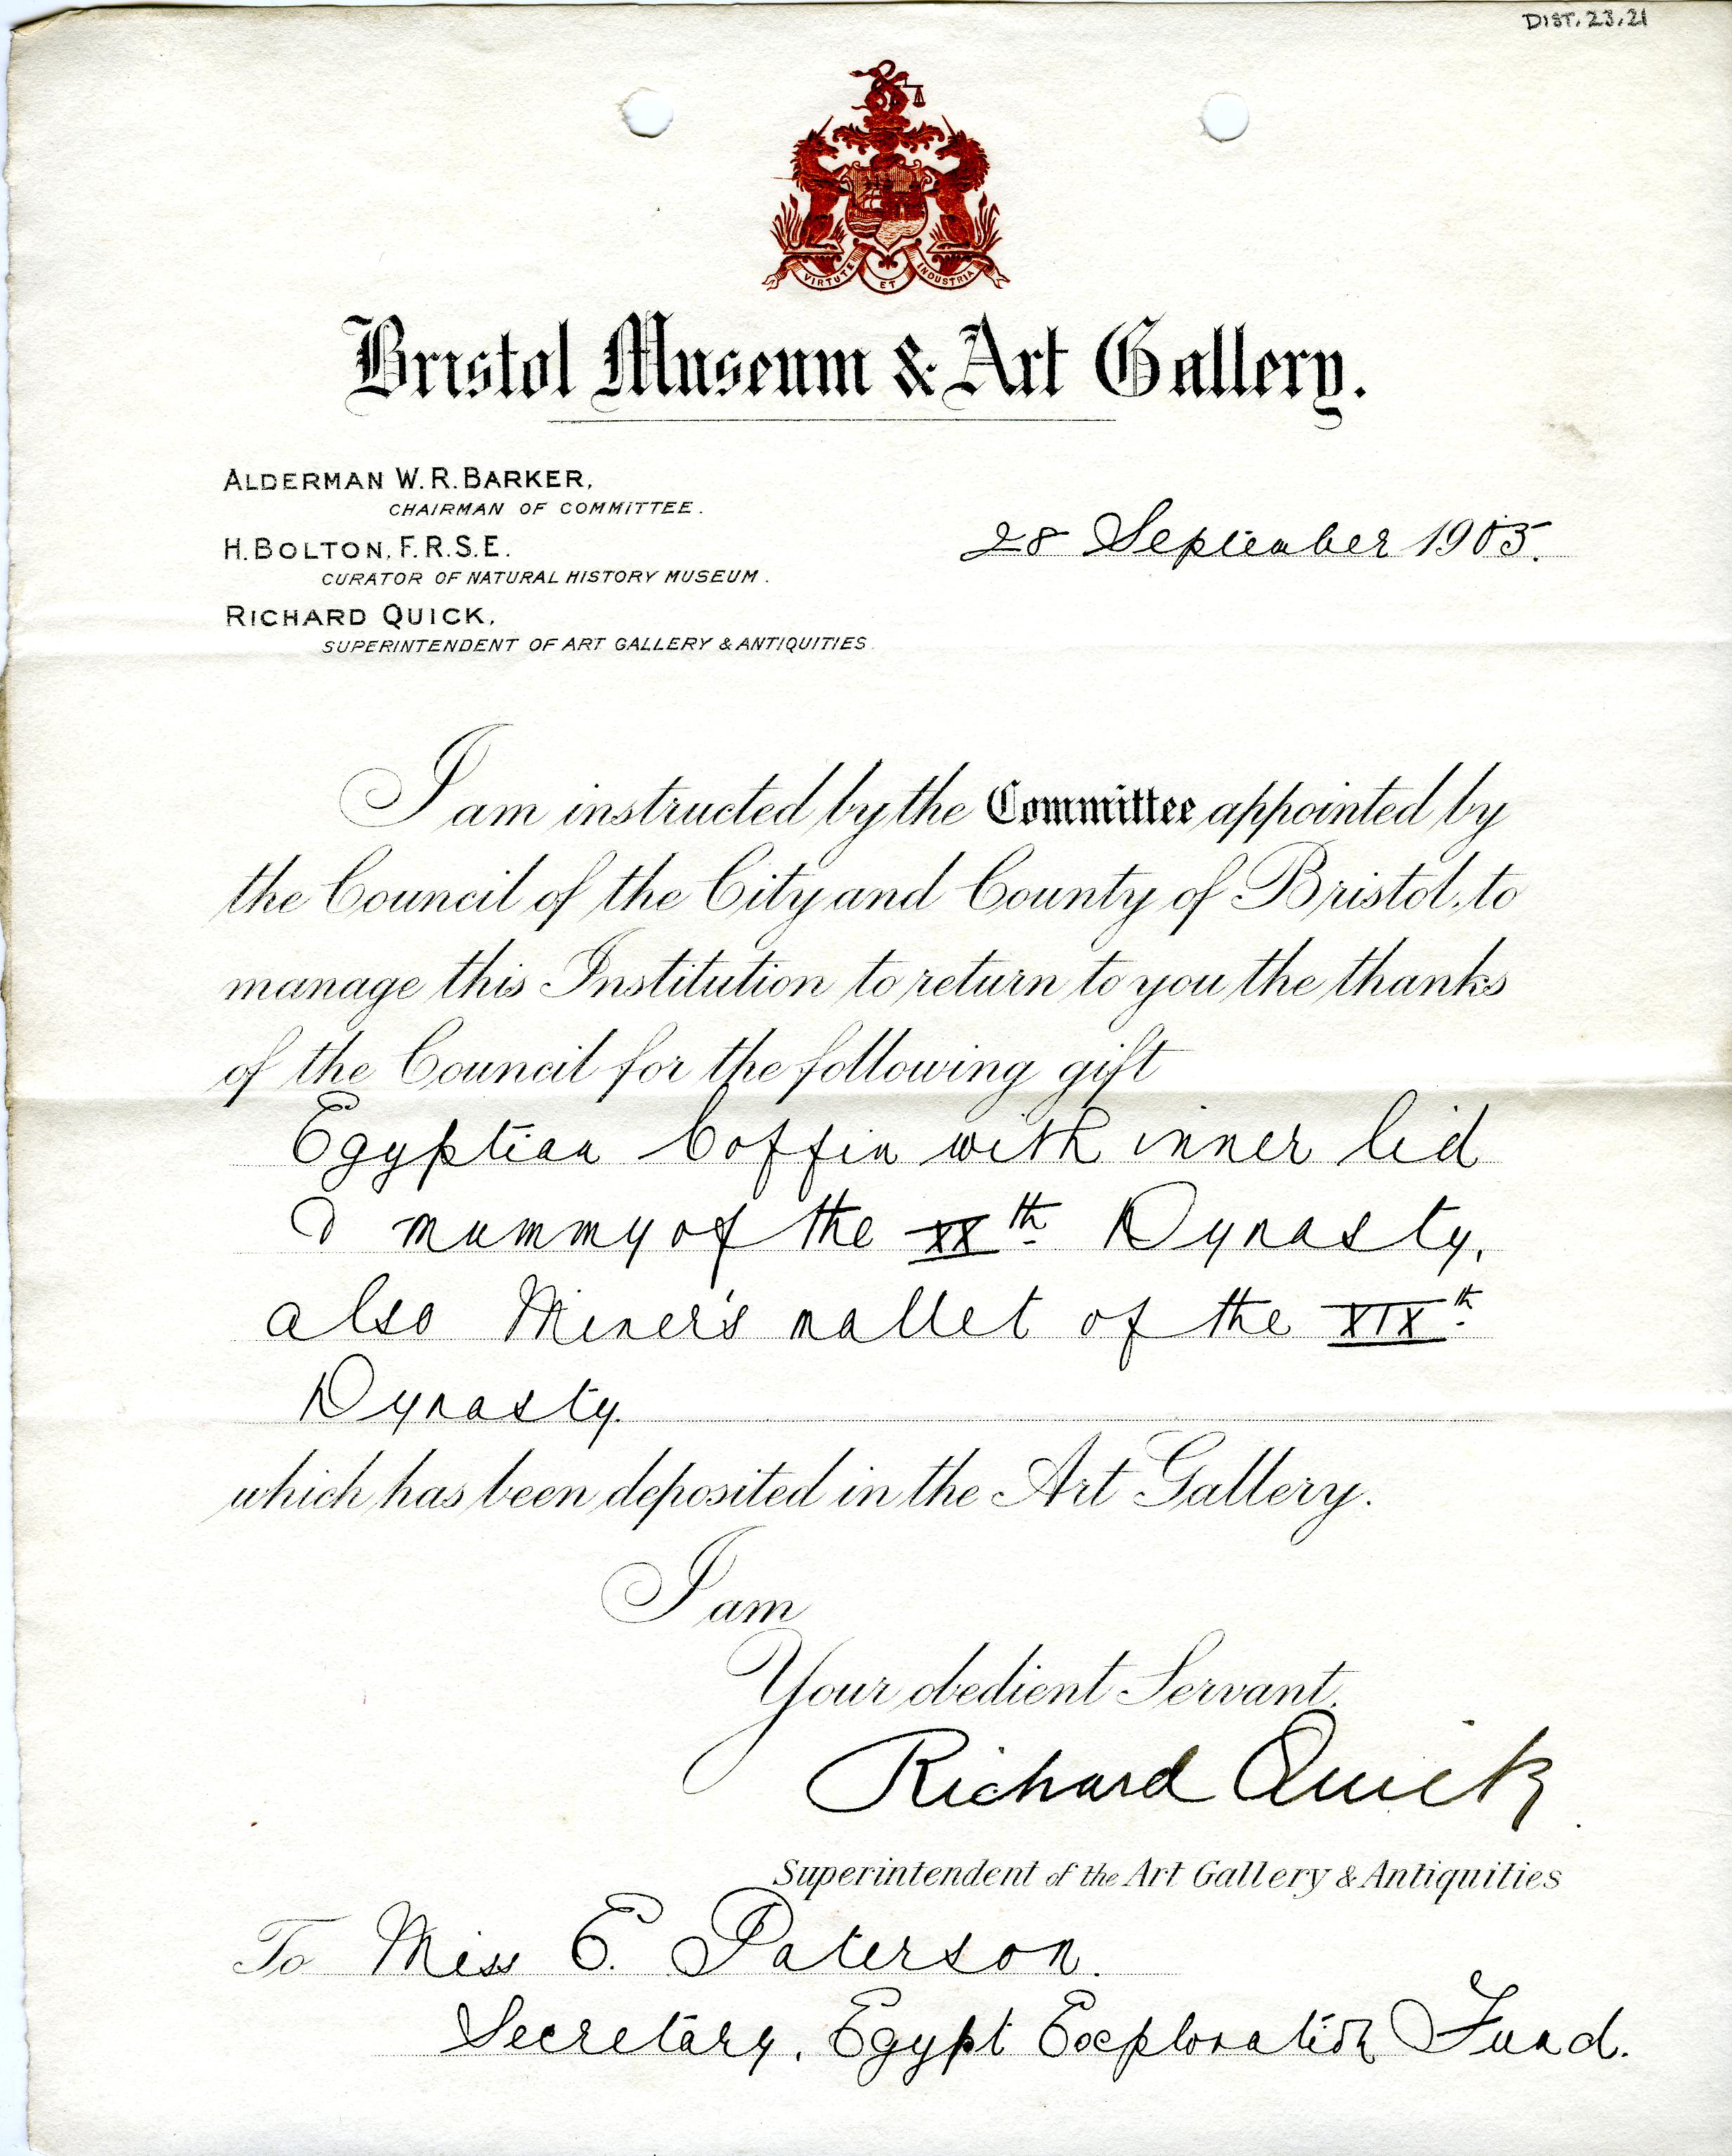 DIST. 23.21
VIRTUTE ET INDUSTRIA
Bristol Museum & Art Gallery.
ALDERMAN W. R. BARKER,
CHAIRMAN OF COMMITTEE.
H. BOLTON, F.R.S.E.
CURATOR OF NATURAL HISTORY MUSEUM.
RICHARD QUICK,
SUPERINTENDENT OF ART GALLERY & ANTIQUITIES.
28 September 1905.
I am instructed by the Committee appointed by
the Council of the City and County of Bristol, to
manage this Institution to return to you the thanks
of the Council for the following gift
Egyptian Coffin with inner lid
& mummy of the XXth Dynasty,
also Miner's mallet of the XIXth
Dynasty.
which has been deposited in the Art Gallery.
I am
Your obedient Servant,
Richard Quick.
Superintendent of the Art Gallery & Antiquities
To Miss E. Paterson.
Secretary, Egypt Exploration Fund.